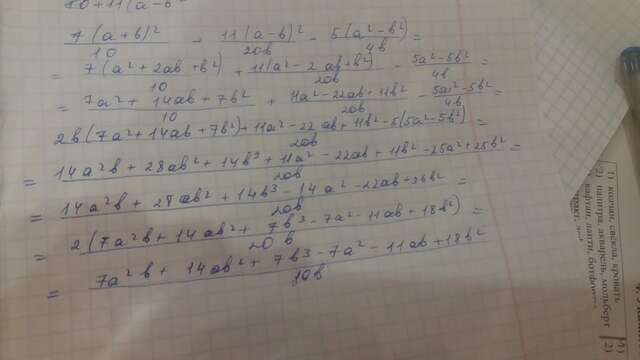 10+11(a-b
7(a+b)²/10 + 11(a-b)²/20b - 5(a²-b²)/4b =
= 7(a²+2ab+b²)/10 + 11(a²-2ab+b²)/20b - 5a²-5b²/4b =
= 7a²+14ab+7b²/10 + 11a²-22ab+11b²/20b - 5a²-5b²/4b =
2b(7a²+14ab+7b²)+11a²-22ab+11b²-5(5a²-5b²)/20b =
= 14a²b+28ab²+14b³+11a²-22ab+11b²-25a²+25b²/20b =
= 14a²b+28ab²+14b³-14a²-22ab+36b²/20b =
= 2(7a²b+14ab²+7b³-7a²-11ab+18b²)/20b =
= 7a²b+14ab²+7b³-7a²-11ab+18b²/10b
1) колчан, свёкла, кровать
2) палитра, акварель, мольберт